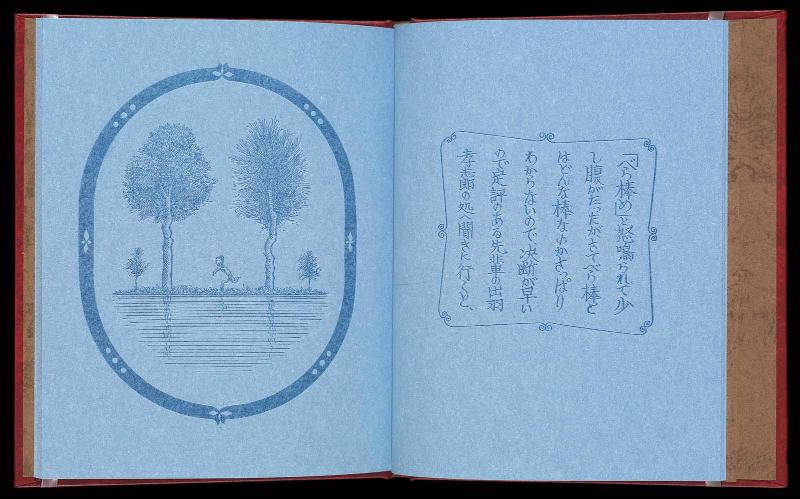 「べら棒め」と怒鳴られて少
し腹がたったがさてべら棒と
はどんな棒なのかさっぱり
わからないので決断が早い
ので定評のある先輩の出羽
孝志郎の処へ聞きに行くと、